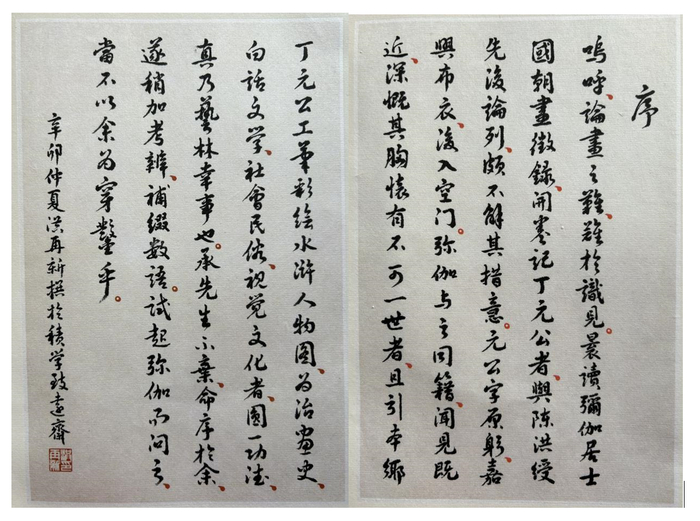 序
嗚呼、論畫之難、難於識見。曩讀彌伽居士
國朝畫徵錄、開卷記丁元公者、與陳洪綬
先後論列、頗不解其措意。元公字原躬、嘉
興布衣、後入空門。弥伽与之同籍、聞見既
近、深慨其胸懷有不可一世者、且引本鄉
丁元公工筆彩绘水滸人物圖、为治畫史、
白話文学、社會民俗、視觉文化者、圖一功德、
真乃藝林幸事也。承先生不棄、命序於余、
遂稍加考辨、補缀数語。試起弥伽而問之、
當不以余为穿鑿乎。
辛卯仲夏洪再新撰於積学致遠齋